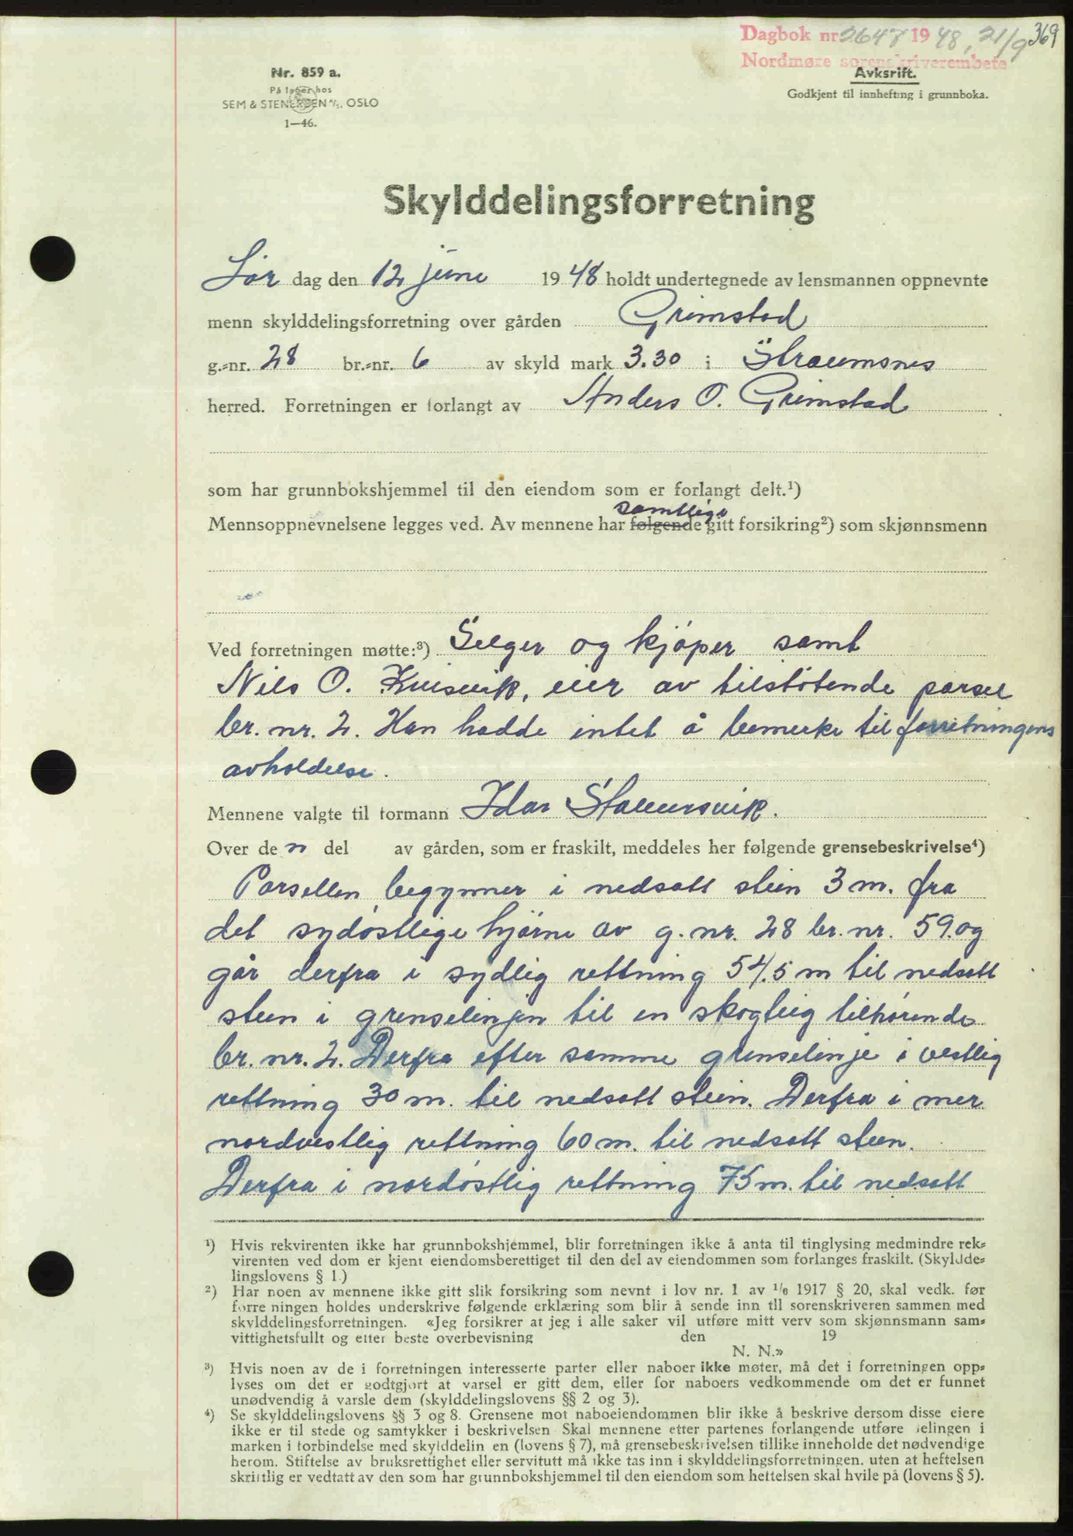 Dagbok nr. 2647 1948, 21/9 369
Nordmøre sorenskriverembete
Nr. 859 a.
På lager hos
SEM & STENERSEN A/S, OSLO
1—46.
Avkskrift.
Godkjent til innhefting i grunnboka.
Skylddelingsforretning
Lør dag den 12 juni 1948 holdt undertegnede av lensmannen oppnevnte
menn skylddelingsforretning over gården Grimstad
g.-nr. 28 br.-nr. 6 av skyld mark 3.30 i Straumsnes
herred. Forretningen er forlangt av Anders O. Grimstad
som har grunnbokshjemmel til den eiendom som er forlangt delt.¹)
samtlige
Mennsoppnevnelsene legges ved. Av mennene har følgende gitt forsikring²) som skjønnsmenn
Ved forretningen møtte:³) Selger og kjøper samt
Nils O. Kvisvik, eier av tilstøtende parsel
br. nr. 2. Han hadde intet å bemerke til forretningens
avholdelse.
Mennene valgte til formann Idar Stavnesvik.
Over den del av gården, som er fraskilt, meddeles her følgende grensebeskrivelse⁴)
Parsellen begynner i nedsatt stein 3 m. fra
det sydøstlige hjørne av g. nr. 28 br. nr. 59. og
går derfra i sydlig rettning 54.5 m til nedsatt
stein i grenselinjen til en skogteig tilhørende
br. nr. 2. Derfra efter samme grenselinje i vestlig
rettning 30 m. til nedsatt stein. Derfra i mer
nordvestlig rettning 60 m. til nedsatt stein.
Derfra i nordøstlig rettning 75 m. til nedsatt
¹) Hvis rekvirenten ikke har grunnbokshjemmel, blir forretningen ikke å anta til tinglysing medmindre rek-
virenten ved dom er kjent eiendomsberettiget til den del av eiendommen som forlanges fraskilt. (Skyldde-
lingslovens § 1.)
²) Har noen av mennene ikke gitt slik forsikring som nevnt i lov nr. 1 av 1/6 1917 § 20, skal vedk. før
forretningen holdes underskrive følgende erklæring som blir å sende inn til sorenskriveren sammen med
skylddelingsforretningen. «Jeg forsikrer at jeg i alle saker vil utføre mitt verv som skjønnsmann sam-
vittighetsfullt og etter beste overbevisning den 19
N. N.»
³) Hvis noen av de i forretningen interesserte parter eller naboer ikke møter, må det i forretningen opp-
lyses om det er godtgjort at varsel er gitt dem, eller for naboers vedkommende om det er funnet
unødvendig å varsle dem (skylddelingslovens §§ 2 og 3).
⁴) Se skylddelingslovens §§ 3 og 8. Grensene mot naboeiendommen blir ikke å beskrive dersom disse eiere
ikke er til stede og samtykker i beskrivelsen Skal mennene etter partenes forlangende utføre delingen i
marken i forbindelse med skylddelingen (lovens § 7), må grensebeskrivelsen tillike inneholde det nødvendige
herom. Stiftelse av bruksrettighet eller servitutt må ikke tas inn i skylddelingsforretningen, uten at heftelsen
skriftlig er vedtatt av den som har grunnbokshjemmel til den eiendom som heftelsen skal hvile på (lovens § 5).